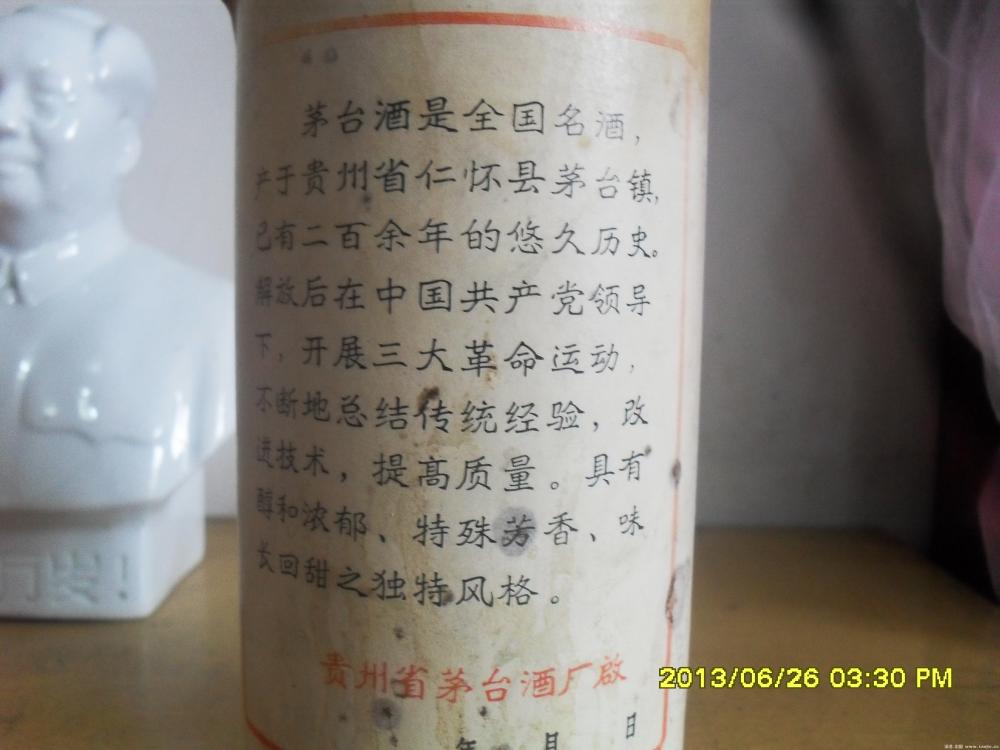 茅台酒是全国名酒，
产于贵州省仁怀县茅台镇，
已有二百余年的悠久历史。
解放后在中国共产党领导
下，开展三大革命运动，
不断地总结传统经验，改
进技术，提高质量。具有
醇和浓郁、特殊芳香、味
长回甜之独特风格。
贵州省茅台酒厂啟
年 月 日
2013/06/26 03:30 PM